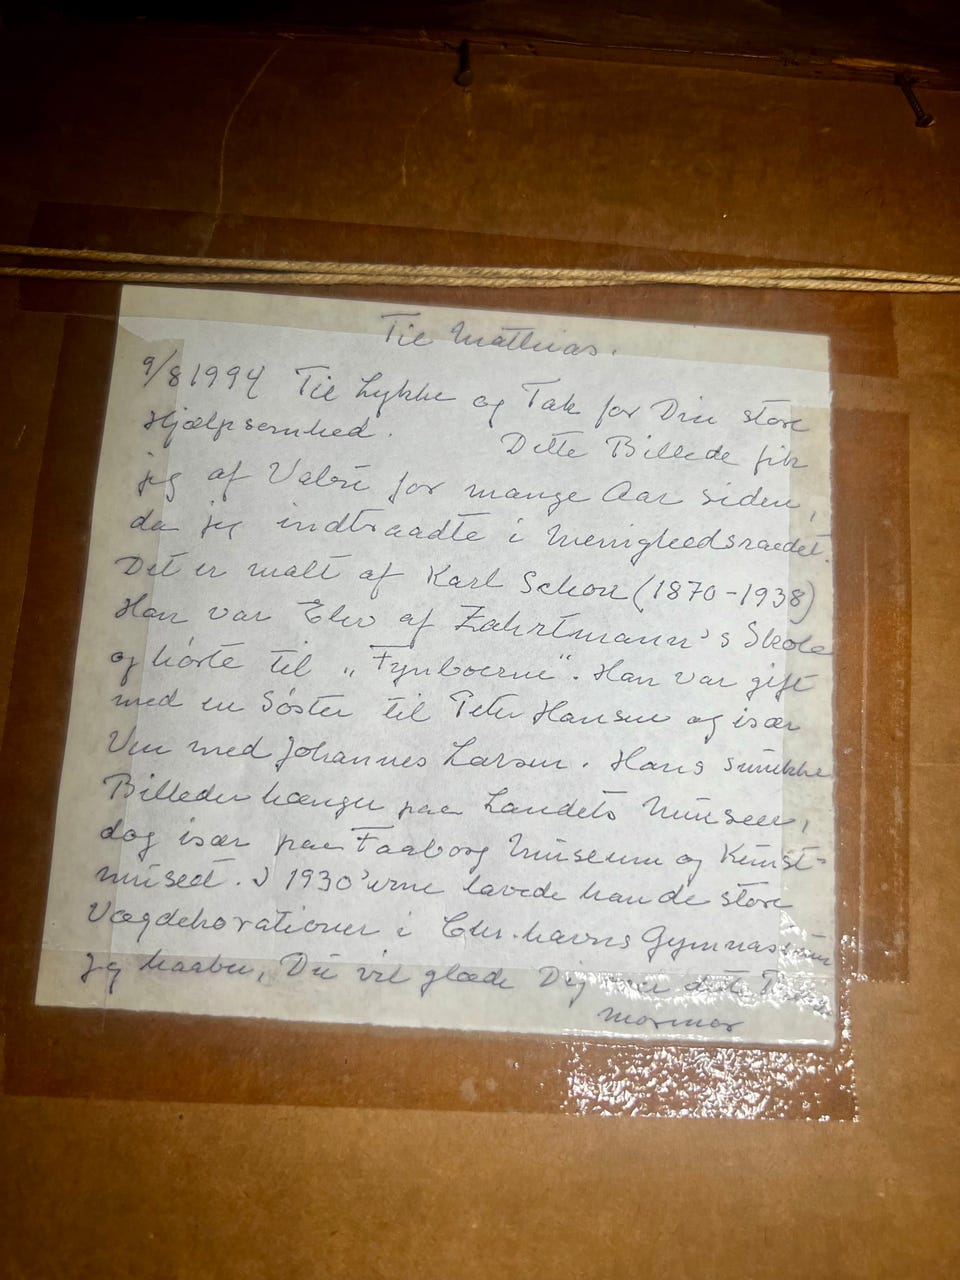 Til Mathias.
9/8 1994 Til Lykke og Tak for Din store
Hjælpsomhed. Dette Billede fik
jeg af Valri for mange Aar siden,
da jeg indtraadte i Menighedsraadet.
Det er malt af Karl Schou (1870-1938)
Han var Elev af Zahrtmann's Skole
og hørte til "Fynboerne". Han var gift
med en Søster til Peter Hansen og især
Ven med Johannes Larsen. Hans smukke
Billeder hænger paa Landets Museer,
dog især paa Faaborg Museum og Kunst-
museet. I 1930'erne lavede han de store
Vægdekorationer i Chr.havns Gymnasium
Jeg haaber, Du vil glæde Dig ved det
Mormor